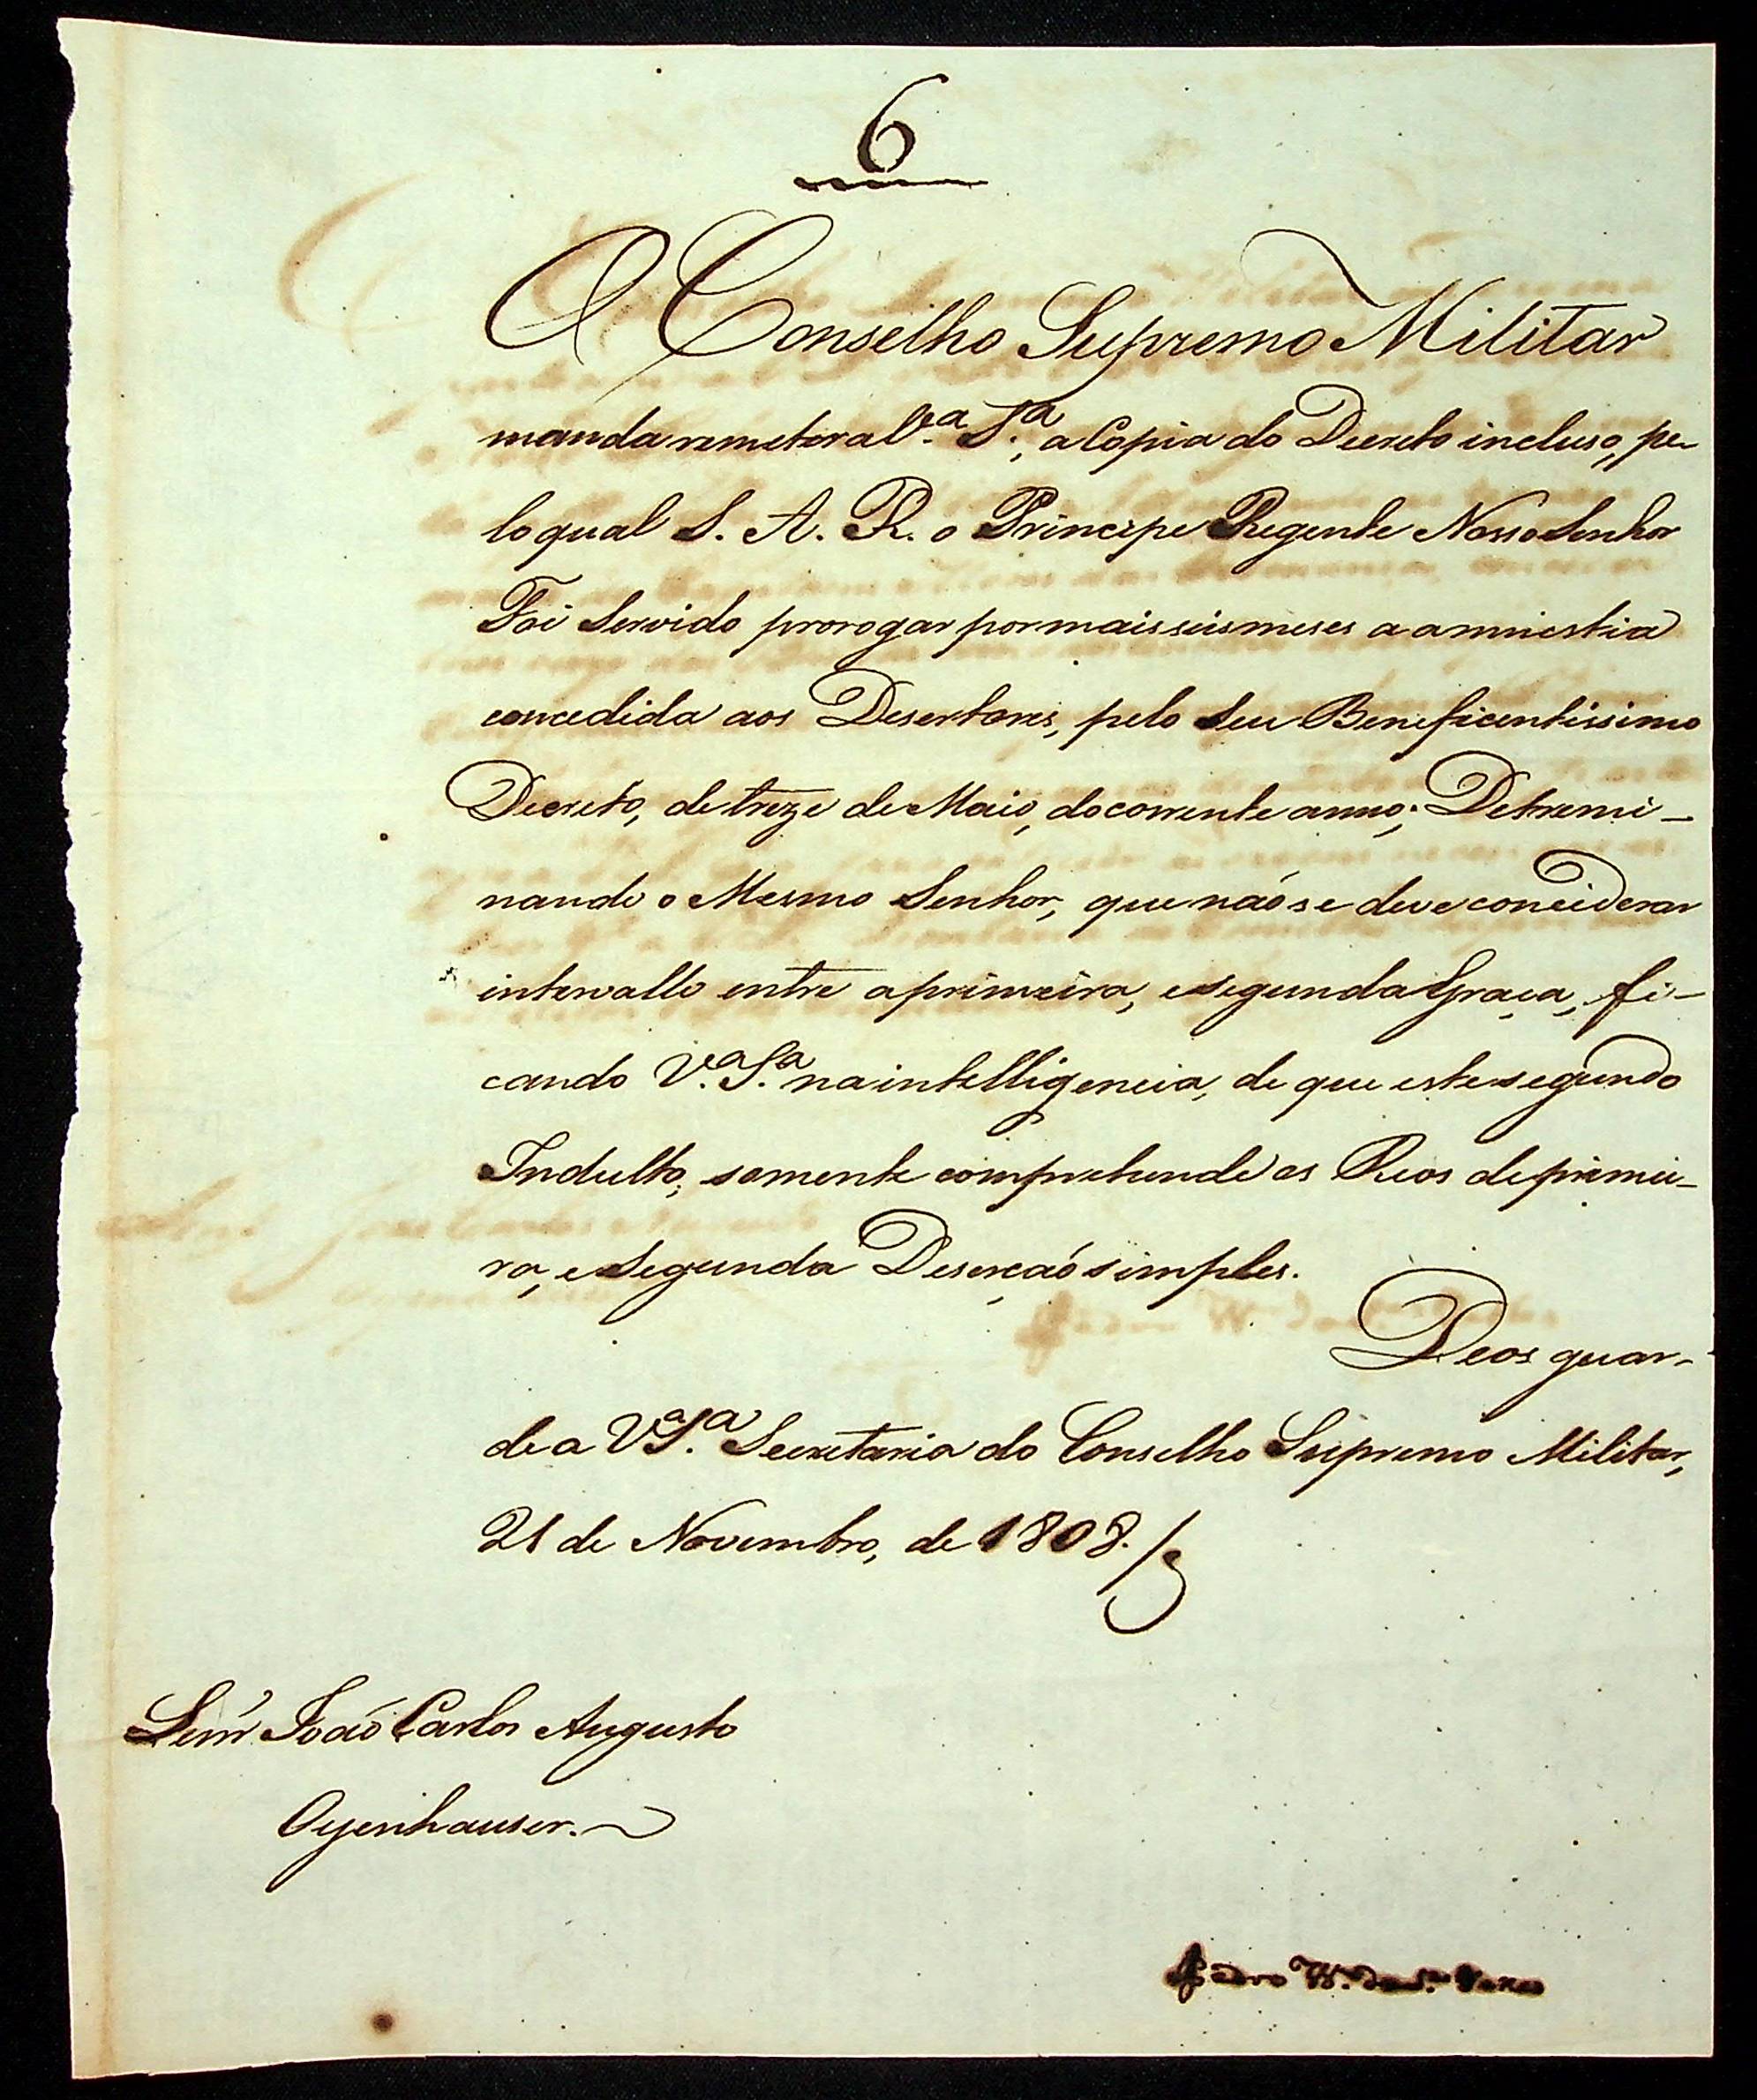 6
O Conselho Supremo Militar
manda remeter a V.ª S.ª, a Copia do Decreto incluso, pe-
lo qual S. A. R. o Principe Regente Nosso Senhor
Foi Servido prorogar por mais seis meses a amnestia
concedida aos Desertores, pelo Seu Beneficentissimo
Decreto, de treze de Maio, do corrente anno; Detremi-
nando o Mesmo Senhor, que naõ se deve conciderar
intervallo entre a primeira, e segunda Graça, fi-
cando V.ª S.ª na intelligencia, de que este segundo
Indulto, somente comprehende os Reos de primei-
ra, e Segunda Deserçaõ simples.
Deos guar-
de a V.ª S.ª Secretaria do Conselho Supremo Militar,
21 de Novembro, de 1808.
Senr. Joaõ Carlos Augusto
Oyenhauser.
Pedro